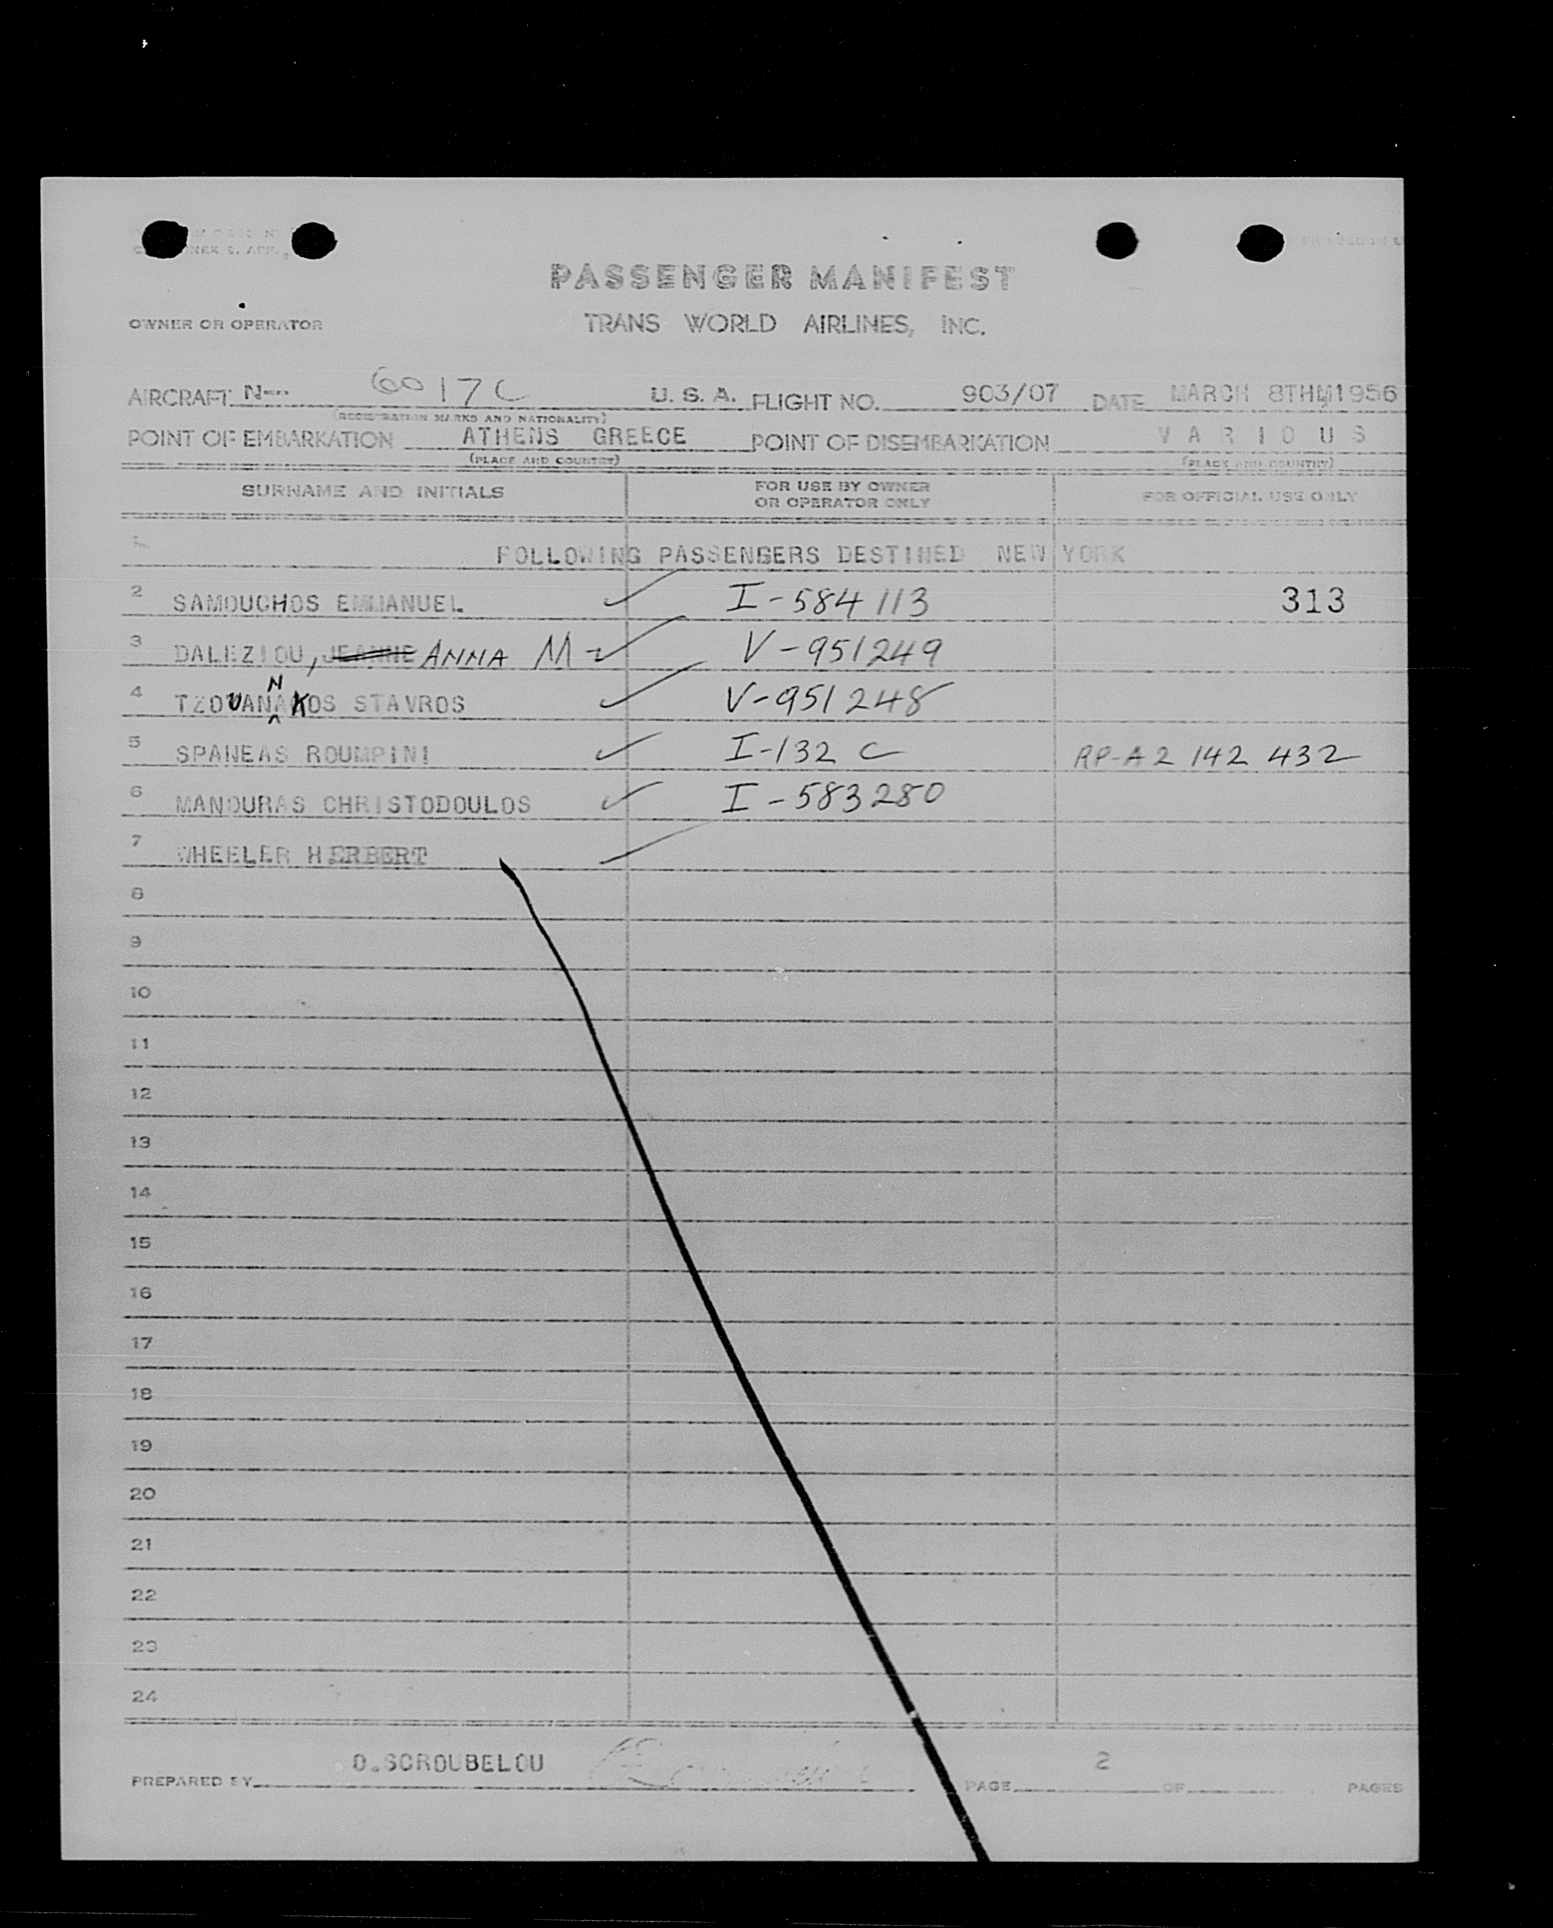 PASSENGER MANIFEST
OWNER OR OPERATOR TRANS WORLD AIRLINES, INC.
AIRCRAFT N--- 6017C U. S. A. FLIGHT NO. 903/07 DATE MARCH 8TH 1956
(REGISTRATION MARKS AND NATIONALITY)
POINT OF EMBARKATION ATHENS GREECE POINT OF DISEMBARKATION V A R I O U S
(PLACE AND COUNTRY) (PLACE AND COUNTRY)
SURNAME AND INITIALS FOR USE BY OWNER OR OPERATOR ONLY FOR OFFICIAL USE ONLY
1 FOLLOWING PASSENGERS DESTINED NEW YORK
2 SAMOUCHOS EMMANUEL I-584113 313
3 DALEZIOU, JEANNE ANNA M V-951249
4 TZOUANNAKOS STAVROS V-951248
5 SPANEAS ROUMPINI I-132 C RP-A2 142 432
6 MANOURAS CHRISTODOULOS I-583280
7 WHEELER HERBERT
8
9
10
11
12
13
14
15
16
17
18
19
20
21
22
23
24
PREPARED BY O.SCROUBELOU PAGE 2 OF PAGES